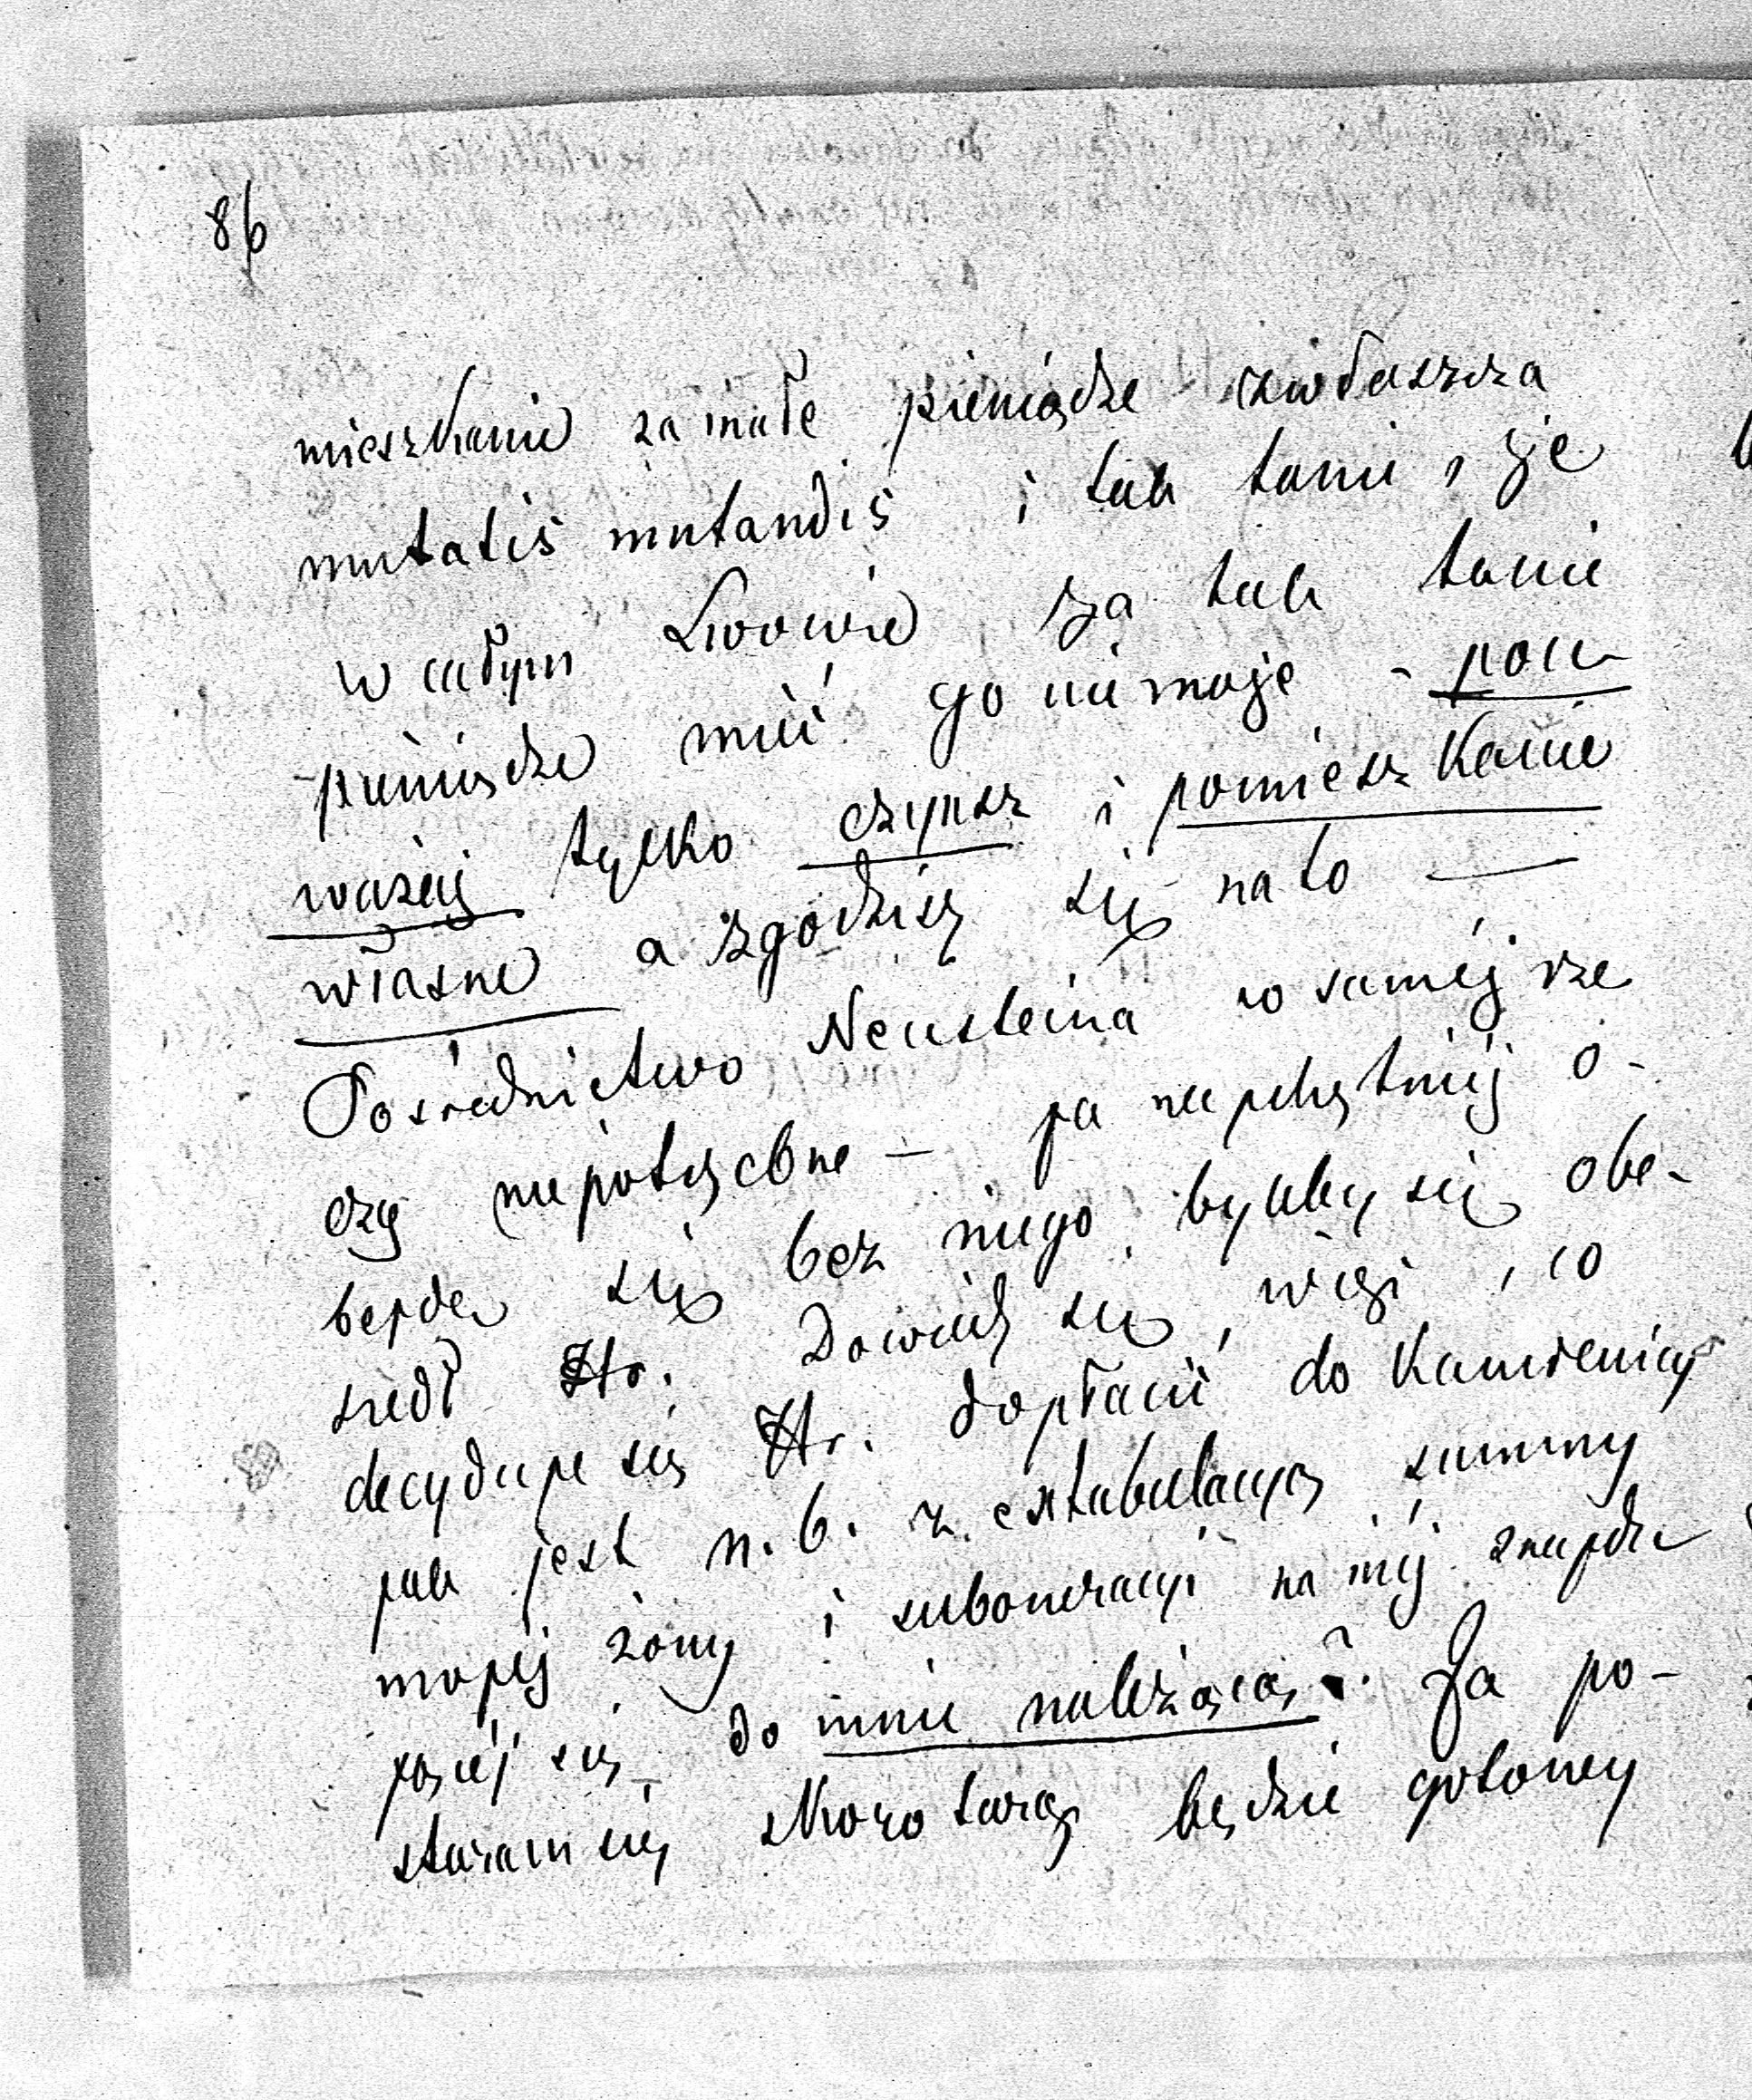 86
mieszkanie za małe pieniądze zwłaszcza
mutatis mutandis i tak tanie, że
w całym Lwowie za tak tanie
pieniądze mieć go nie może - pou
ważaj tylko czynsz i pomieszkanie
własne a zgodzisz się na to —
Pośrednictwo Neusteina w saméj rze
czy niepotrzebne — ja najchętniéj o-
bejdę się bez niego, byleby się obe-
szedł Hr. Dowiedz się, więc, co
decyduje się Hr. dopłacić do kamienicy
jak jest n.b. z extabulacyą summy
mojéj żony i suboneracyi na niéj znajdu
jącéj się do mnie należącą? Ja po-
staram się skoro targ będzie gotowy